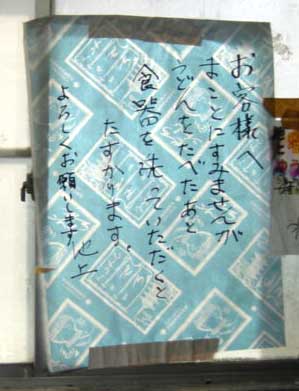 お客様へ
まことにすみませんが
うどんをたべたあと
食器を洗っていただくと
たすかります。
よろしくお願いします 池上